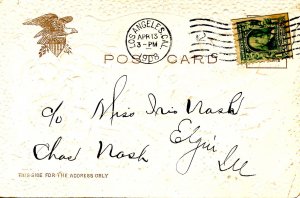 LOS ANGELES, CAL.
APR 13
3-PM
1908
POST CARD
c/o Miss Iris Nash
Elgin
Chas Nash
Ill
THIS SIDE FOR THE ADDRESS ONLY